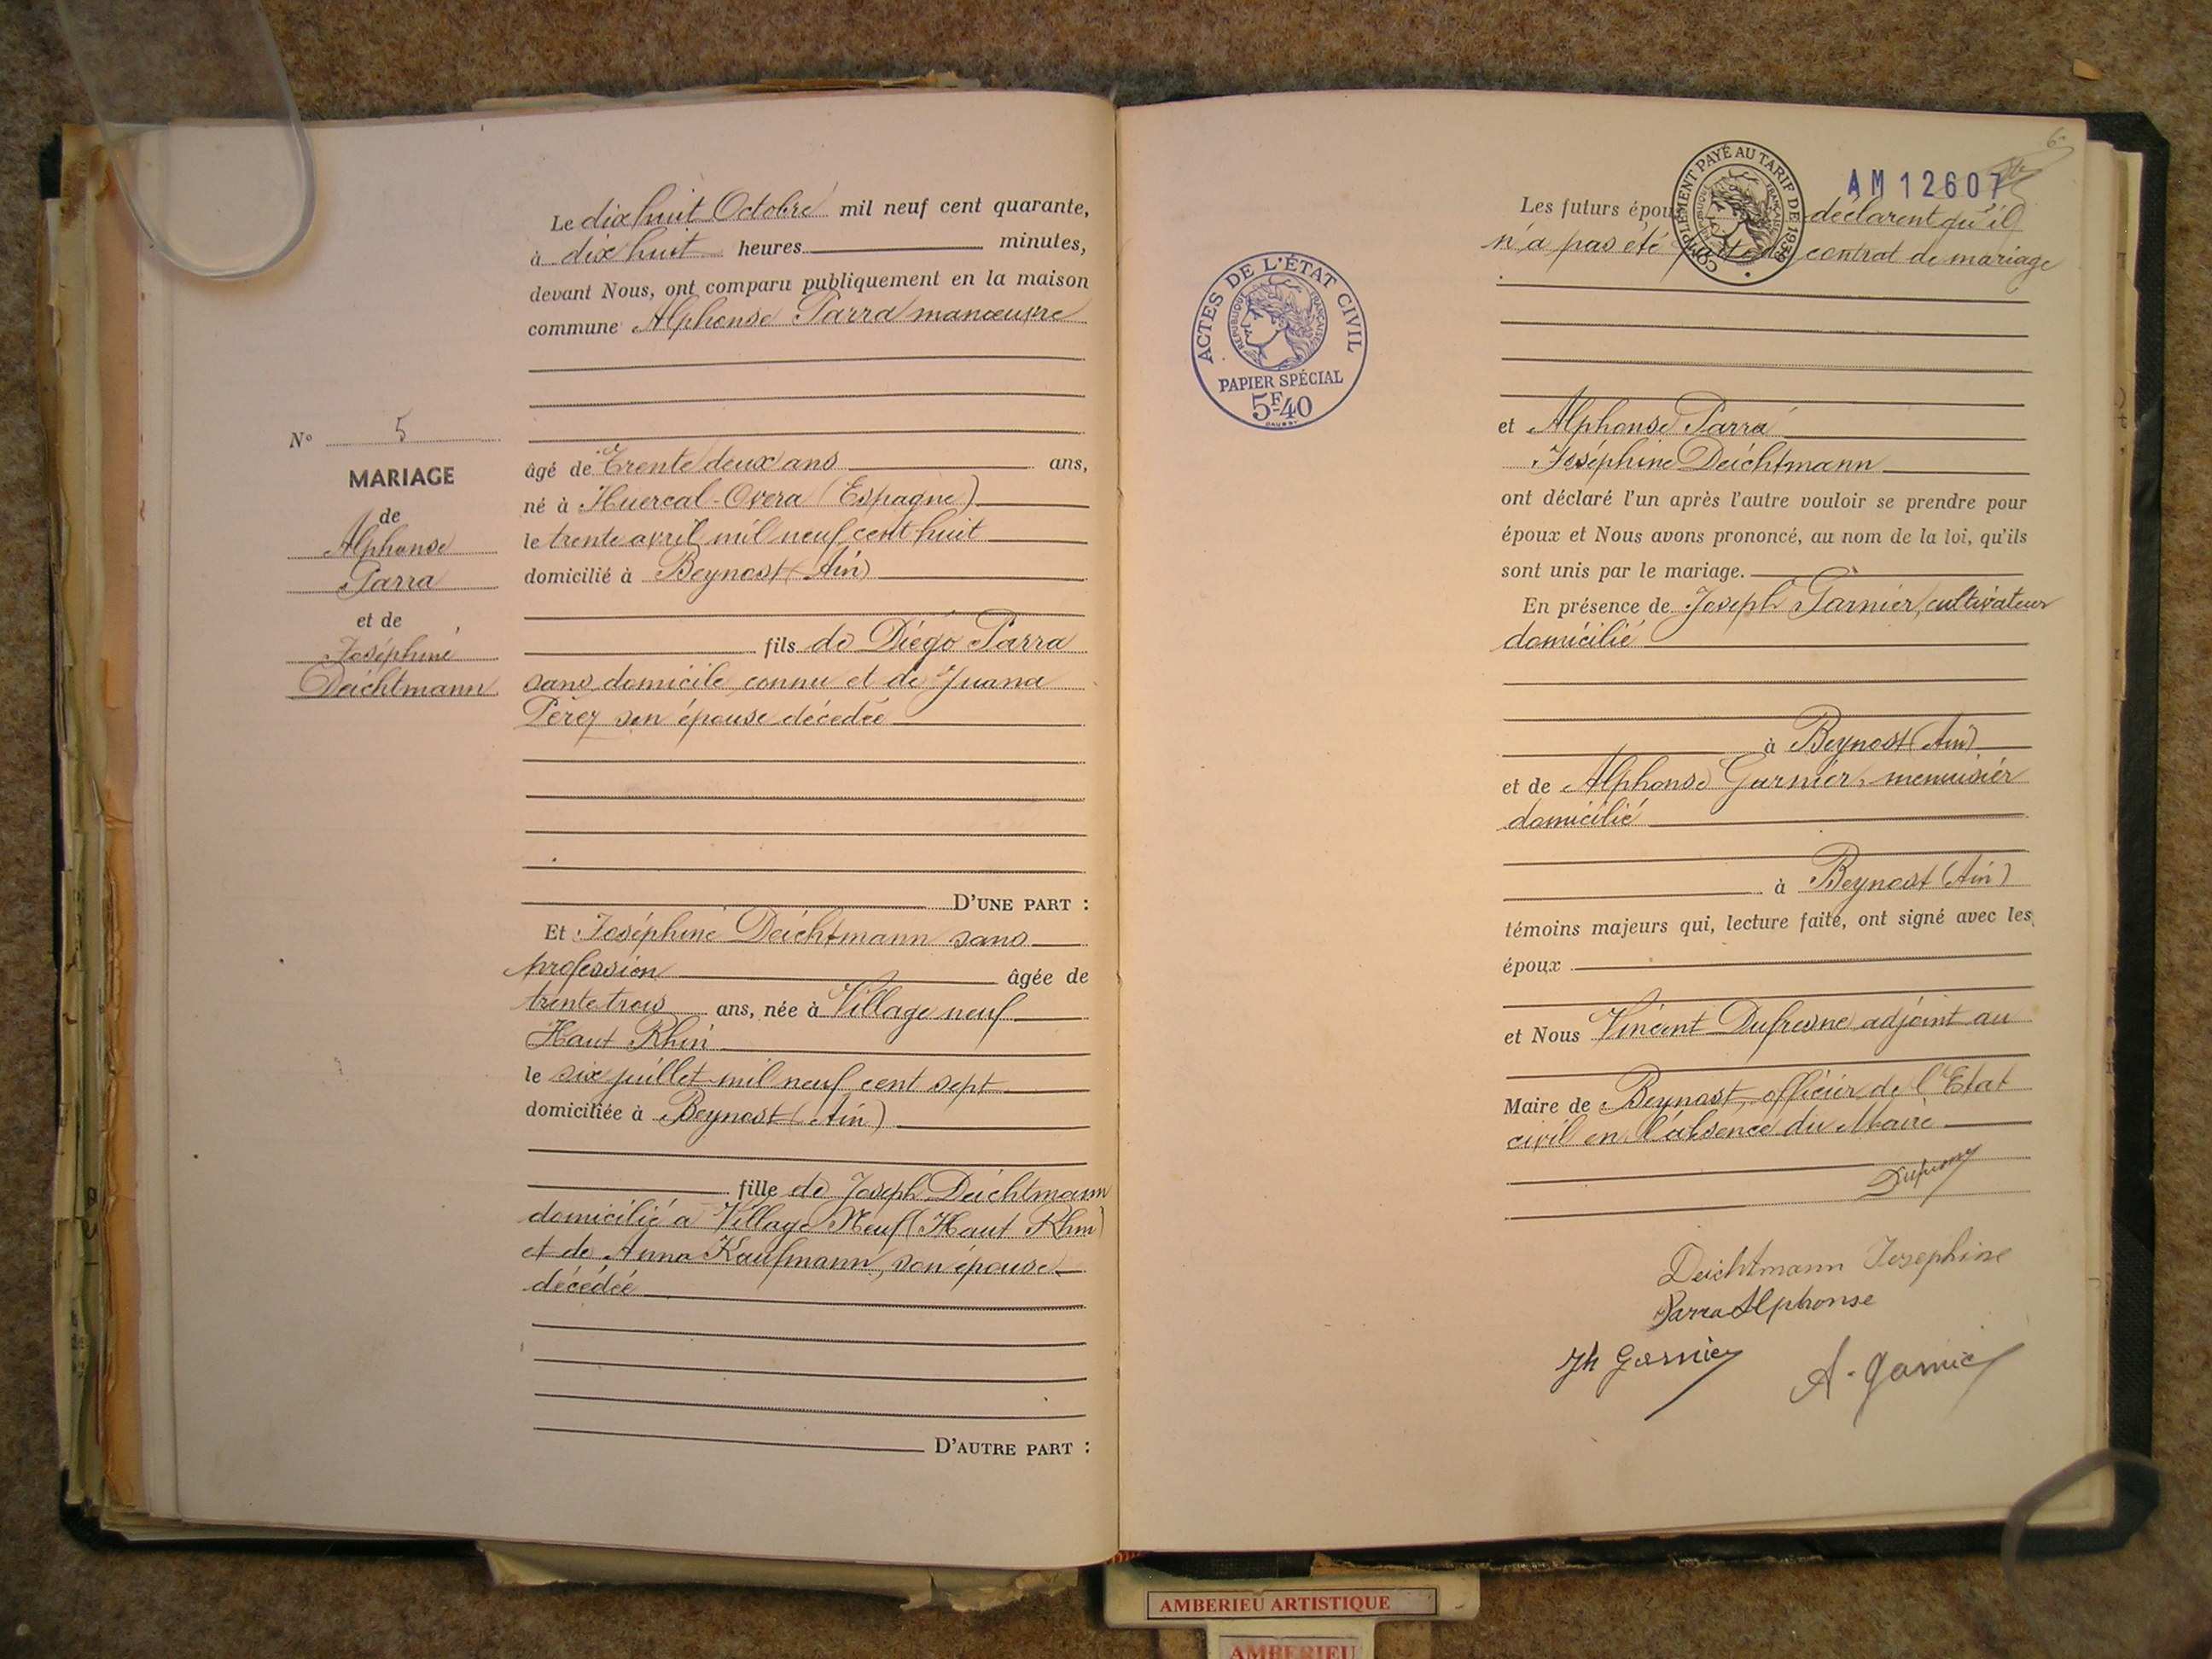 Le dix huit Octobre mil neuf cent quarante,
à dix huit heures minutes,
devant Nous, ont comparu publiquement en la maison
commune Alphonse Parra manœuvre
N° 5
MARIAGE
de
Alphonse
Parra
et de
Joséphine
Deichtmann
âgé de Trente deux ans ans,
né à Huercal-Overa (Espagne)
le trente avril mil neuf cent huit
domicilié à Beynost (Ain)
fils de Diégo Parra
sans domicile connu et de Juana
Pérez son épouse décédée
D'UNE PART :
Et Joséphine Deichtmann sans
profession âgée de
trente trois ans, née à Village neuf
Haut Rhin
le six juillet mil neuf cent sept
domiciliée à Beynost (Ain)
fille de Joseph Deichtmann
domicilié à Village Neuf (Haut Rhin)
et de Anna Kaufmann, son épouse
décédée
D'AUTRE PART :
ACTES DE L'ÉTAT CIVIL
RÉPUBLIQUE FRANÇAISE
PAPIER SPÉCIAL
5F.40
COMPLÉMENT PAYÉ AU TARIF DE 1939
RÉPUBLIQUE FRANÇAISE
AM 12607
6
Les futurs épou déclarent qu'il
n'a pas été contrat de mariage
et Alphonse Parra
Joséphine Deichtmann
ont déclaré l'un après l'autre vouloir se prendre pour
époux et Nous avons prononcé, au nom de la loi, qu'ils
sont unis par le mariage.
En présence de Joseph Garnier, cultivateur
domicilié
à Beynost (Ain)
et de Alphonse Garnier, menuisier
domicilié
à Beynost (Ain)
témoins majeurs qui, lecture faite, ont signé avec les
époux
et Nous Vincent Dufresne adjoint au
Maire de Beynost, officier de l'Etat
civil en l'absence du Maire
Deichtmann Josephine
Parra Alphonse
Jh Garnier
A. Garnier
AMBERIEU ARTISTIQUE
AMBERIEU